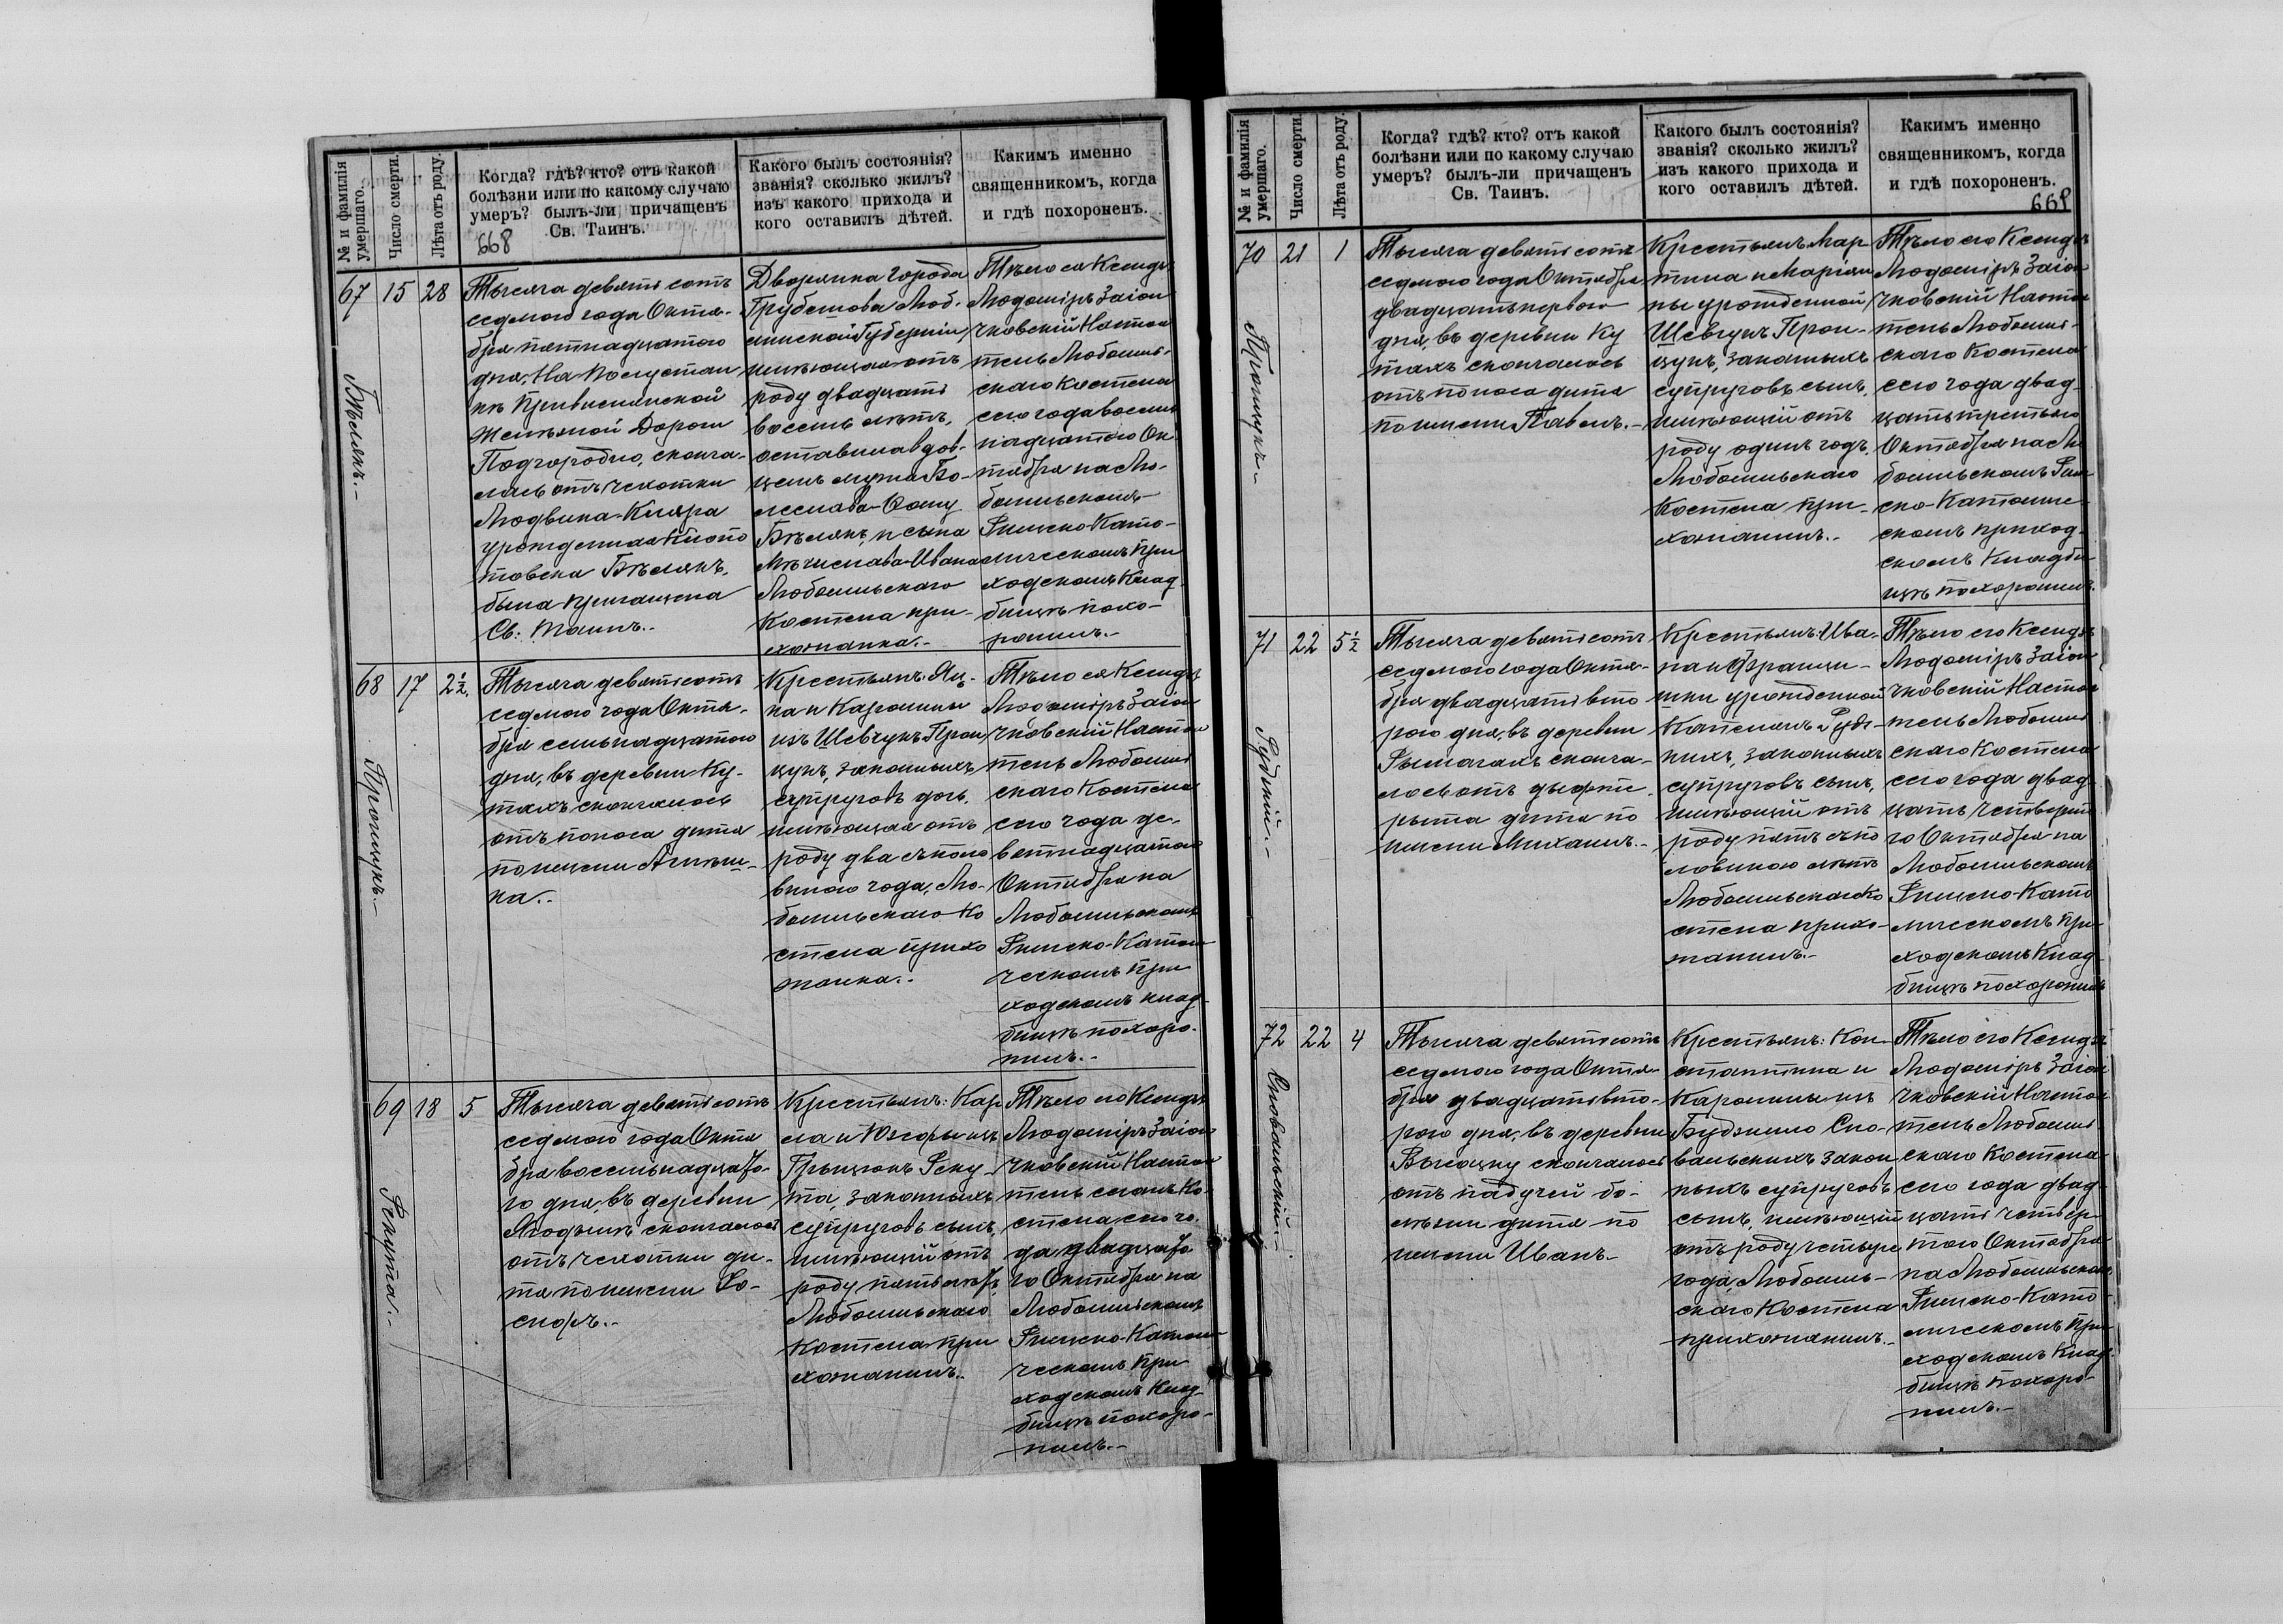 № и фамилія
умершаго.
Число смерти.
Лѣта отъ роду.
Когда? гдѣ? кто? отъ какой
болѣзни или по какому случаю
умеръ? былъ-ли причащенъ
Св. Таинъ.
668
Какого былъ состоянія?
званія? сколько жилъ?
изъ какого прихода и
кого оставилъ дѣтей.
Каким именно
священникомъ, когда
и гдѣ похороненъ.
67
Бѣлякъ.-
15
28
Тысяча девятьсотъ
седмого года Октя-
бря пятнадцатого
дня, На Полустан
кѣ Привислинской
Желѣзной Дороги
Подгородно, сконча-
лась отъ чехотки
Людвика-Клара
урожденная
Бѣлякъ,
была причащена
Св: Таинъ.-
Дворянка города
Грубешова Люб-
линской Губерніи,
имѣющая отъ
роду двадцать
восемь лѣтъ,
оставила вдов-
цемъ мужа Бо-
леслава
Бѣлякъ, и сына
Мѣчислава-Ивана
Любомльскаго
Костела при-
хожанка.-
Тѣло ея Ксендзъ
Людомиръ Заіон
чковскій Настоя
тель Любомль-
скаго Костела
сего года восем
надцатого Ок
тября на Лю-
бомльскомъ
Римско-Като-
лическомъ При
ходскомъ Клад-
бищѣ похо-
ронилъ.-
68
Процюкъ.-
17
2½.
Тысяча девятьсотъ
седмого года Октя-
бря семьнадцатого
дня, въ деревни Ку-
тахъ скончалось
отъ поноса дитя
по имени
на.-
Крестьянъ: Яц-
ка и Каролины
изъ Шевчукъ Про
цукъ, законныхъ
супруговъ дочь,
имѣющая отъ
роду два съ поло
виною года, Лю-
бомльскаго Ко
стела прихо
жанка.-
Тѣло ея Ксендзъ
Людомиръ Заіон
чковскій Настоя
тель Любомль
скаго Костела
сего года де-
вятнадцатого
Октября на
Любомльскомъ
Римско-Католи
ческомъ При
ходскомъ клад-
бищѣ похоро-
нилъ.-
69
Рекута.-
18
5
Тысяча девятьсотъ
седмого года Октя
бря восемьнадцато-
го дня, въ деревни
скончалось
отъ чехотки ди-
тя по имени Іо-
сифъ.-
Крестьянъ: Кар
ла и Юзефы изъ
Грыцюкъ Реку-
та, законныхъ
супруговъ сынъ,
имѣющій отъ
роду пять лѣтъ,
Любомльскаго
Костела при
хожанинъ.-
Тѣло его Ксендзъ
Людомиръ Заіон
чковскій Настоя
тель сего Ко-
стела, сего го-
да двадцато
го Октября на
Любомльскомъ
Римско-Католи
ческомъ При
ходскомъ Клад-
бищѣ похоро-
нилъ.-
№ и фамилія
умершаго.
Число смерти.
Лѣта отъ роду.
Когда? гдѣ? кто? отъ какой
болѣзни или по какому случаю
умеръ? былъ-ли причащенъ
Св. Таинъ.
Какого былъ состоянія?
званія? сколько жилъ?
изъ какого прихода и
кого оставилъ дѣтей.
Каким именно
священникомъ, когда
и гдѣ похороненъ.
669
70
Процукъ.-
21
1
Тысяча девятьсотъ
седмого года Октября
двадцатьпервого
дня, въ деревни Ку
тахъ скончалось
отъ поноса дитя
по имени Павелъ.-
Крестьянъ: Мар
тина и Маріян
ны урожденной
Шевчукъ Про-
цукъ, законныхъ
супруговъ сынъ,
имѣющій отъ
роду одинъ годъ,
Любомльскаго
Костела при-
хожанинъ.-
Тѣло его Ксендзъ
Людомиръ Заіон
чковскій Настоя
тель Любомль-
скаго Костела
сего года двад-
цатьтретьяго
Октября на Лю
бомльскомъ Рим
ско-Католиче-
скомъ приход-
скомъ Кладби-
щѣ похоронилъ.
71
Рудкій.-
22
5½
Тысяча девятьсотъ
седмого года Октя-
бря двадцатьвто
рого дня, въ деревни
Рымачахъ сконча-
лось отъ дыфте-
рыта дитя по
имени Михаилъ.-
Крестьянъ: Ива-
на и Францы-
шки урожденной
законныхъ
супруговъ сынъ,
имѣющій отъ
роду пять съ по
ловиною лѣтъ
Любомльскаго Ко
стела прихо-
жанинъ.-
Тѣло его Ксендзъ
Людомиръ Заіон
чковскій Настоя
тель Любомль
скаго Костела
сего года двад-
цать четверто
го Октября на
Любомльскомъ
Римско-Като
лическомъ При
ходскомъ Клад-
бищѣ похоронилъ
72
22
4
Тысяча девятьсотъ
седмого года Октя-
бря двадцатьвто-
рого дня, въ деревни
Высоцку скончалось
отъ падучей бо-
лѣзни дитя по
имени Иванъ.-
Крестьянъ: Кон-
стантина и
Каролины изъ
законныхъ супруговъ
сынъ, имѣющій
отъ роду четыре
года, Любомль-
скаго Костела
прихожанинъ.-
Тѣло его Ксендзъ
Людомиръ Заіон
чковскій Настоя
тель Любомль
скаго Костела
сего года двад-
цать четвер-
того Октября
на Любомльскомъ
Римско-Като-
лическомъ При
ходскомъ Клад-
бищѣ похоро-
нилъ.-